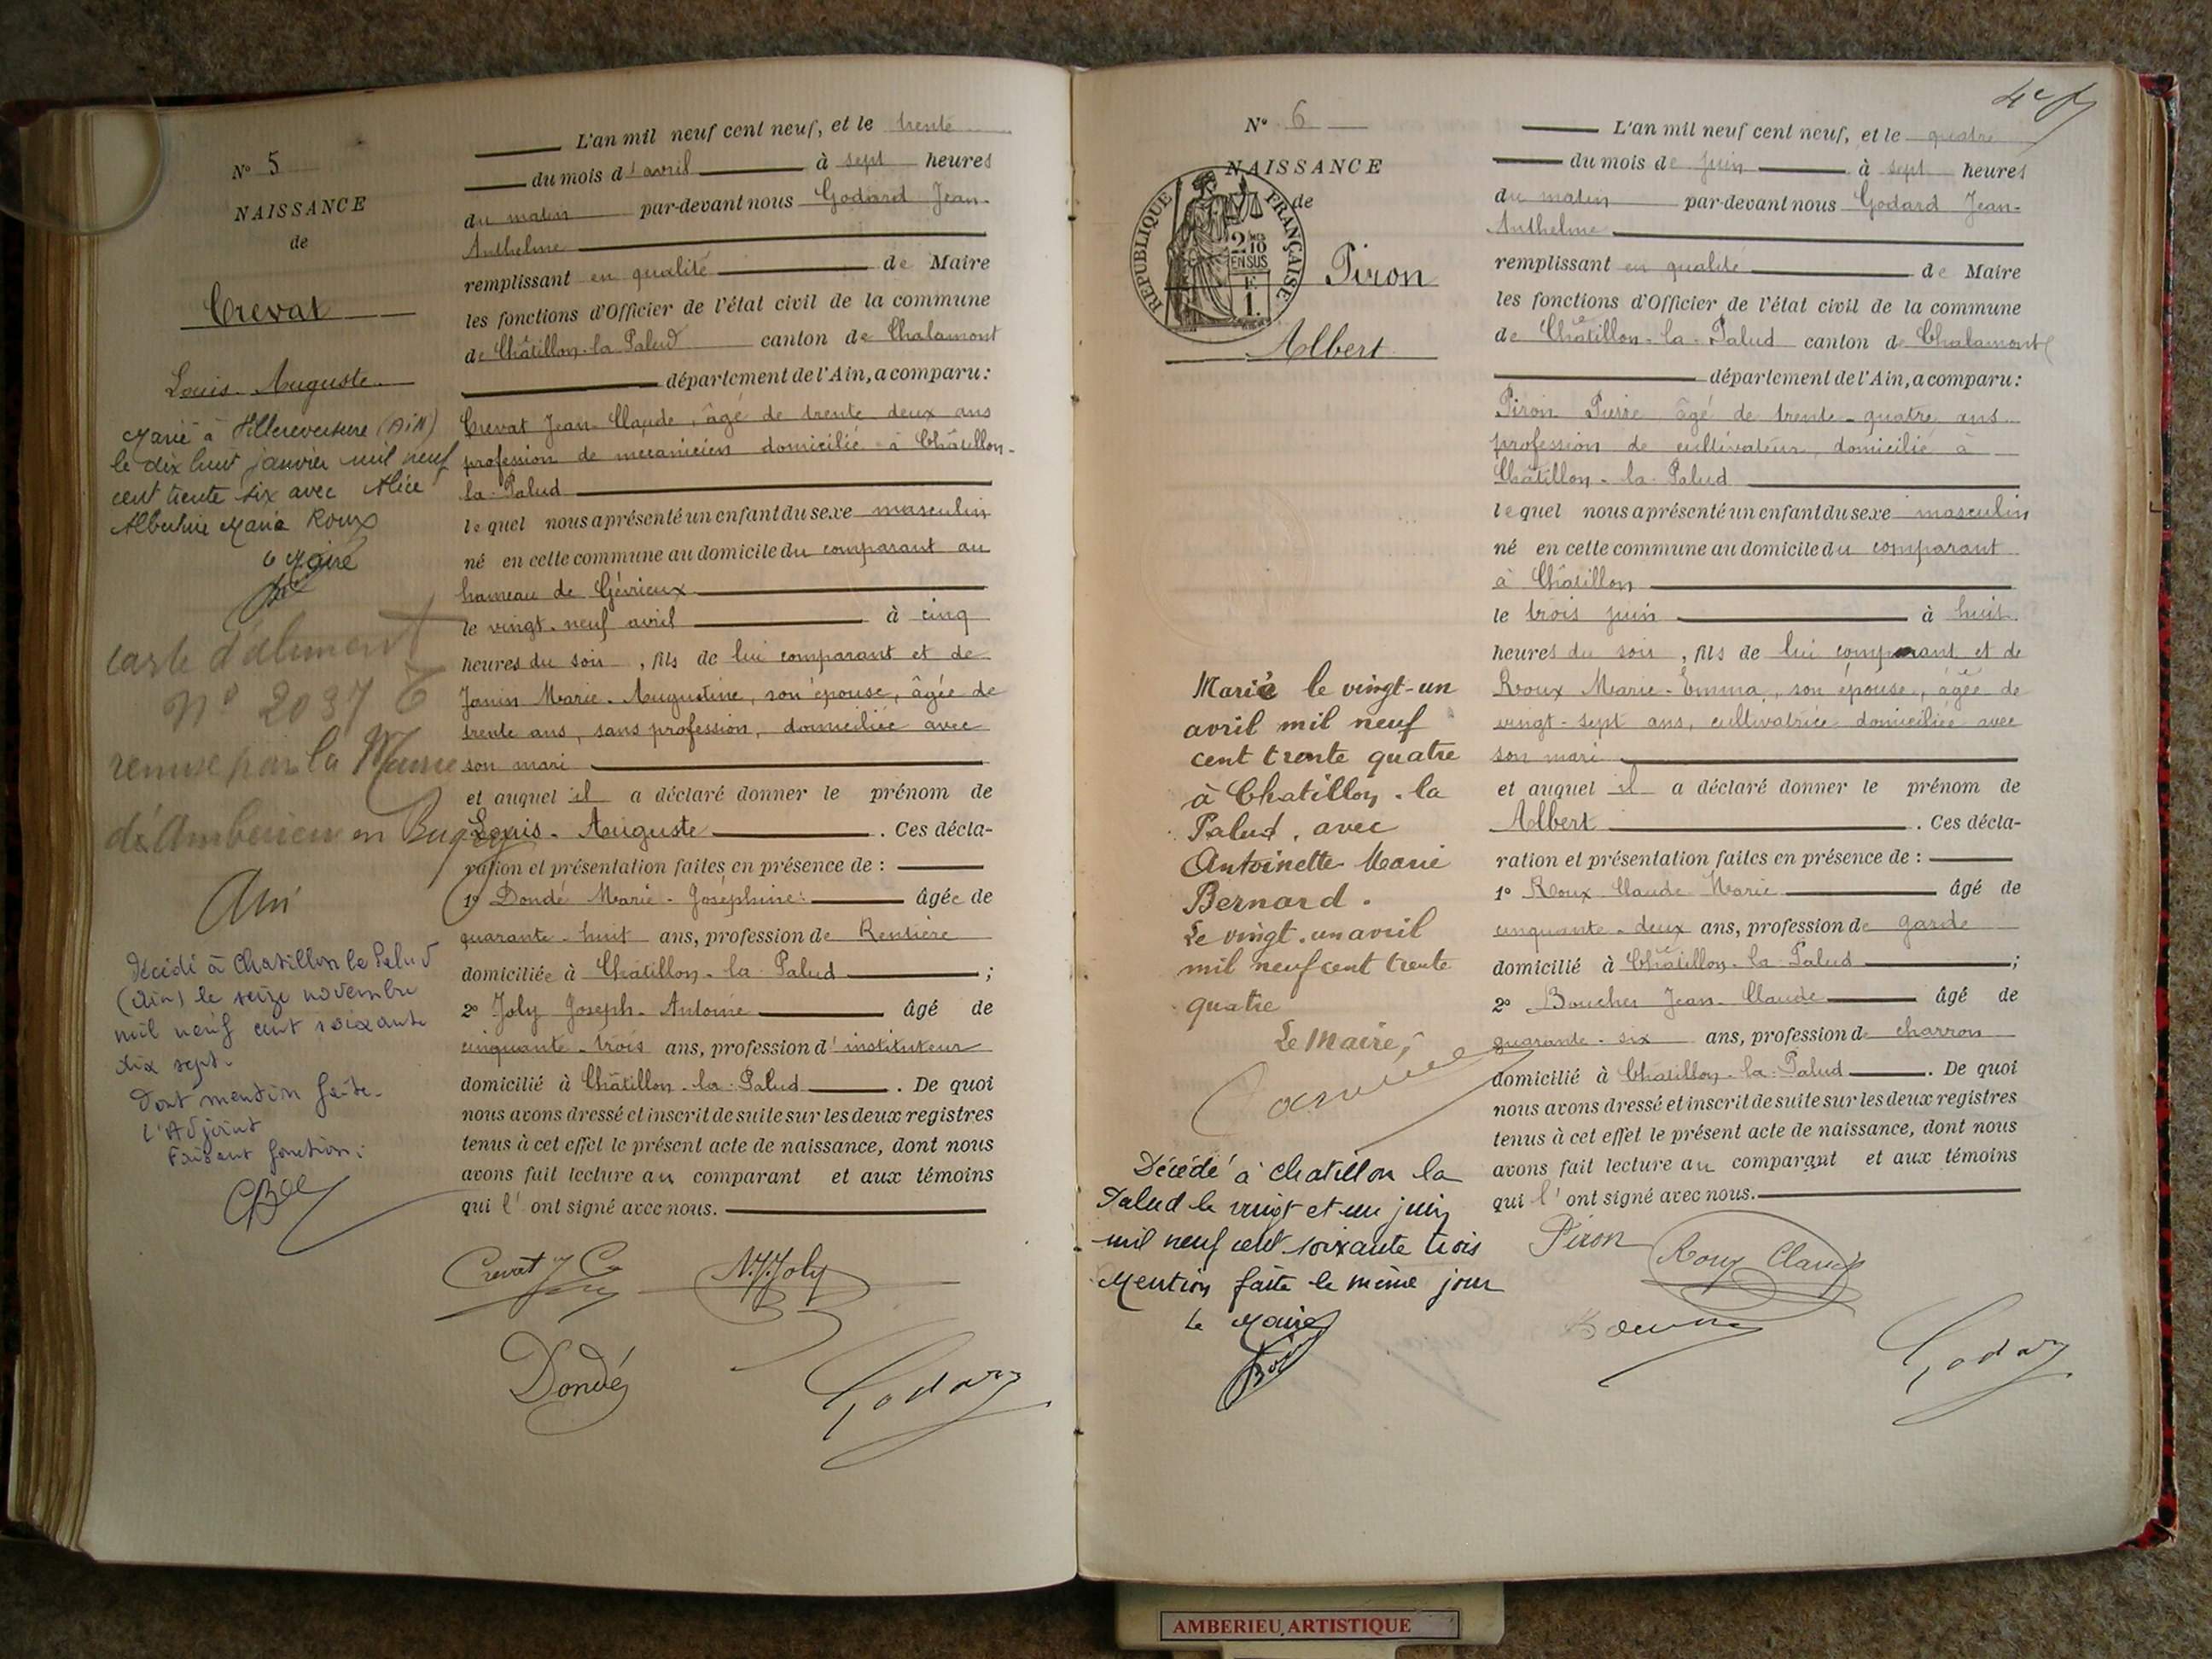 N° 5
NAISSANCE
de
Crevat
Louis-Auguste
Marié à Villereversure (Ain)
le dix huit janvier mil neuf
cent trente six avec Alice
Albertine Maria Roux
Le Maire
carte d'aliment
N° 2037
remise par la Mairie
d'Ambérieu en Bugey
Ain
Décédé à Chatillon la Palud
(Ain) le seize novembre
mil neuf cent soixante
dix sept.
Dont mention faite.
L'Adjoint
Faisant fonction:
L'an mil neuf cent neuf, et le trente
du mois d'avril à sept heures
du matin par-devant nous Godard Jean-
Anthelme
remplissant en qualité de Maire
les fonctions d'Officier de l'état civil de la commune
de Châtillon-la-Palud canton de Chalamont
département de l'Ain, a comparu:
Crevat Jean-Claude, âgé de trente-deux ans
profession de mécanicien domicilié à Châtillon-
la-Palud
lequel nous a présenté un enfant du sexe masculin
né en cette commune au domicile du comparant au
hameau de Gévrieux
le vingt-neuf avril à cinq
heures du soir, fils de lui comparant et de
Janin Marie-Augustine, son épouse, âgée de
trente ans, sans profession, domiciliée avec
son mari
et auquel il a déclaré donner le prénom de
Louis-Auguste. Ces décla-
ration et présentation faites en présence de:
1° Dondé Marie-Joséphine âgée de
quarante-huit ans, profession de Rentière
domiciliée à Châtillon-la-Palud;
2° Joly Joseph-Antoine âgé de
cinquante-trois ans, profession d'instituteur
domicilié à Châtillon-la-Palud. De quoi
nous avons dressé et inscrit de suite sur les deux registres
tenus à cet effet le présent acte de naissance, dont nous
avons fait lecture au comparant et aux témoins
qui l'ont signé avec nous.
Crevat J C
Joly
Dondé
Godard
4e f
N° 6
NAISSANCE
de
RÉPUBLIQUE FRANÇAISE
2/10
EN SUS
F.
1.
Piron
Albert
Marié le vingt-un
avril mil neuf
cent trente quatre
à Chatillon-la
Palud, avec
Antoinette Marie
Bernard.
Le vingt-un avril
mil neuf cent trente
quatre
Le Maire,
Décédé à Chatillon la
Palud le vingt et un juin
mil neuf cent soixante trois
Mention faite le même jour
Le Maire
L'an mil neuf cent neuf, et le quatre
du mois de juin à sept heures
du matin par-devant nous Godard Jean-
Anthelme
remplissant en qualité de Maire
les fonctions d'Officier de l'état civil de la commune
de Châtillon-la-Palud canton de Chalamont
département de l'Ain, a comparu:
Piron Pierre âgé de trente-quatre ans
profession de cultivateur, domicilié à
Châtillon-la-Palud
lequel nous a présenté un enfant du sexe masculin
né en cette commune au domicile du comparant
à Châtillon
le trois juin à huit
heures du soir, fils de lui comparant et de
Roux Marie-Emma, son épouse, âgée de
vingt-sept ans, cultivatrice domiciliée avec
son mari
et auquel il a déclaré donner le prénom de
Albert. Ces décla-
ration et présentation faites en présence de:
1° Roux Claude Marie âgé de
cinquante-deux ans, profession de garde
domicilié à Châtillon-la-Palud;
2° Boucher Jean-Claude âgé de
quarante-six ans, profession de charron
domicilié à Châtillon-la-Palud. De quoi
nous avons dressé et inscrit de suite sur les deux registres
tenus à cet effet le présent acte de naissance, dont nous
avons fait lecture au comparant et aux témoins
qui l'ont signé avec nous.
Piron
Roux Claude
Godard
AMBERIEU ARTISTIQUE